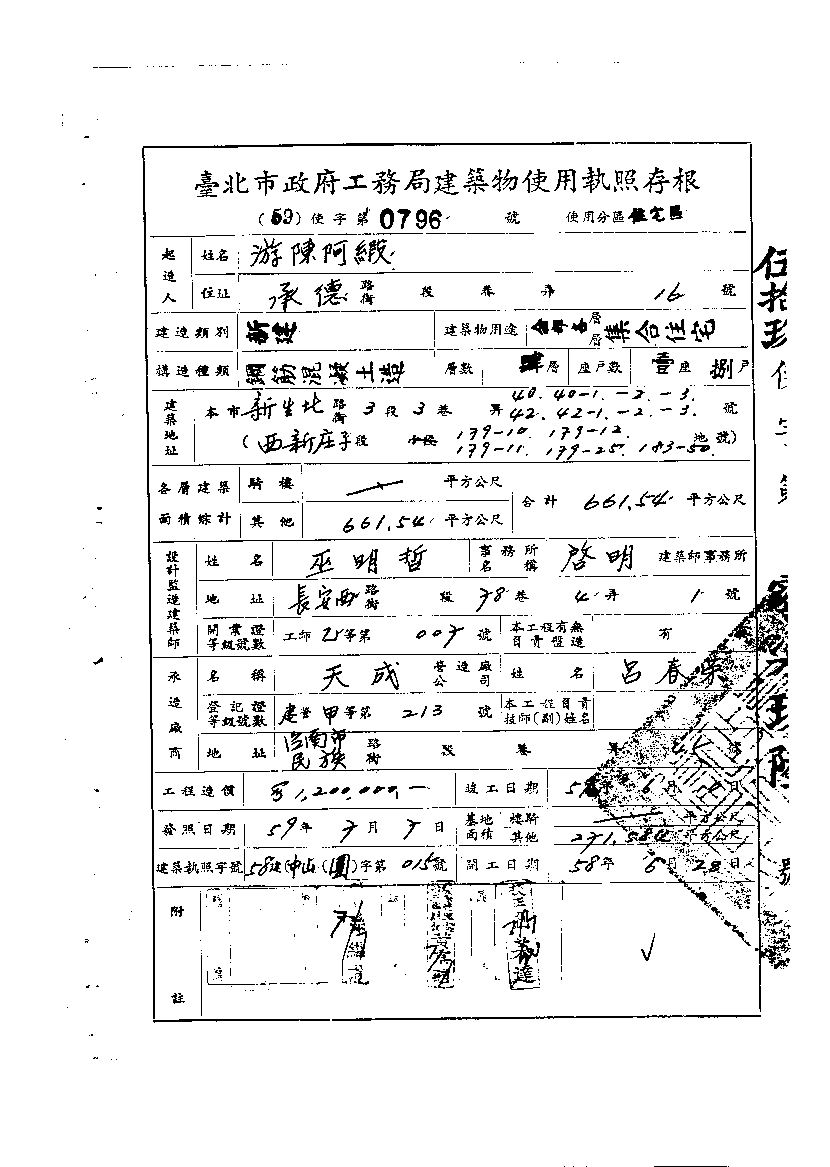 臺北市政府工務局建築物使用執照存根
(59)使字第0796號 使用分區住宅區
起造人 姓名 游陳阿緞
住址 承德路街 段 巷 弄 16 號
建造類別 新建 建築物用途 層層集合住宅
構造種類 鋼筋混凝土造 層數 肆層 座戶數 壹座 捌戶
建築地址 本市新生北路街3段3巷 弄 40.40-1.-2.-3. 42.42-1.-2.-3. 號
(西新庄子段 小段 179-10. 179-12. 179-11. 179-25. 183-50. 地號)
各層建築面積總計 騎樓 平方公尺 合計 661.54 平方公尺
其他 661.54 平方公尺
設計監造建築師 姓名 巫明哲 事務所名稱 啓明 建築師事務所
地址 長安西路街 段 78巷 4弄 1號
開業證等級號數 工師 等第 007 號 本工程有無負責監造 有
承造廠商 名稱 天成 營造廠公司 姓名 呂春榮
登記證等級號數 建營甲等第 213 號 本工程負責技師(副)姓名
地址 民族路街 段 巷 弄 號
工程造價 1,200,000.- 竣工日期 年 6月 日
發照日期 59年7月7日 基地面積 樓騎 平方公尺 其他 271.584 平方公尺
建築執照字號 58建(中山)(圓)字第015號 開工日期 58年6月28日
附註
伍拾玖使字第
號